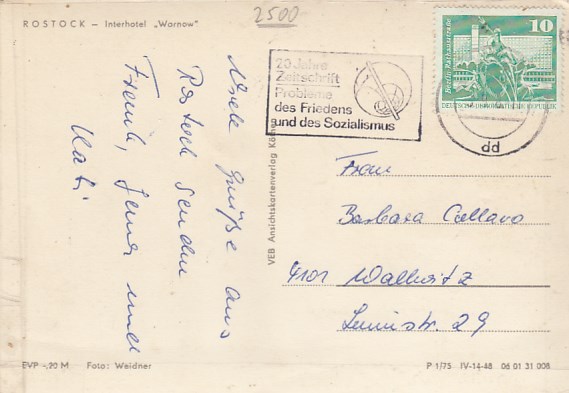 ROSTOCK – Interhotel „Warnow"
2500
Viele Grüße aus
Rostock senden
Frank, Jens und
Kati
EVP -,20 M Foto: Weidner
VEB Ansichtskartenverlag Köthen
20 Jahre
Zeitschrift
Probleme
des Friedens
und des Sozialismus
10
DEUTSCHE DEMOKRATISCHE REPUBLIK
dd
Frau
Barbara Callavo
4101 Wallwitz
Leninstr. 29
P 1/75 IV-14-48 06 01 31 008